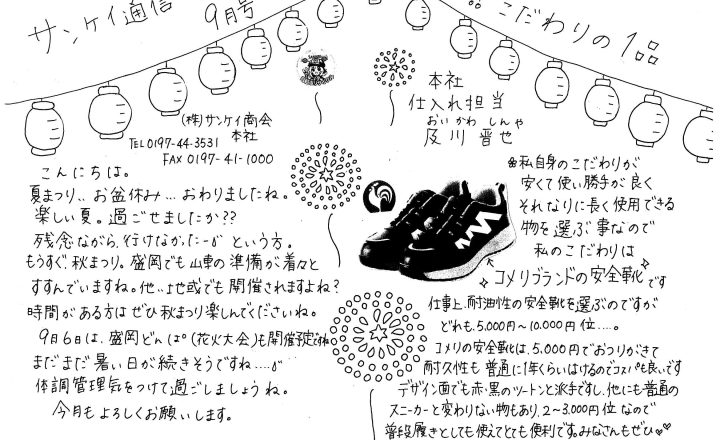 サンケイ通信 9月号
(株)サンケイ商会
本社
TEL 0197-44-3531
FAX 0197-41-1000
こんにちは。
夏まつり、、お盆休み…おわりましたね。
楽しい夏。過ごせましたか??
残念ながら、行けなかったーが という方。
もうすぐ、秋まつり。盛岡でも山車の準備が着々と
すすんでいますね。他地域でも開催されますよね?
時間がある方はぜひ秋まつり楽しんでくださいね。
9月6日は、盛岡どんぱ°(花火大会)も開催予定ですね
まだまだ暑い日が続きそうですね....が
体調管理気をつけて過ごしましょうね。
今月もよろしくお願いします。
こだわりの1品
本社
仕入れ担当
おいかわ しんや
及川 晋也
私自身のこだわりが
安くて使い勝手が良く
それなりに長く使用できる
物を選ぶ事なので
私のこだわりは
コメリブランドの安全靴です
仕事上、耐油性の安全靴を選ぶのですが
どれも、5,000円~10,000円位....。
コメリの安全靴は、5,000円でおつりがきて
耐久性も普通に1年くらいはけるのでコスパも良いです
デザイン面でも赤・黒のツートンと派手ですし、他にも普通の
スニーカーと変わらない物もあり、2~3,000円位なので
普段履きとしても使えてとても便利です。みなさんもぜひ♥♥